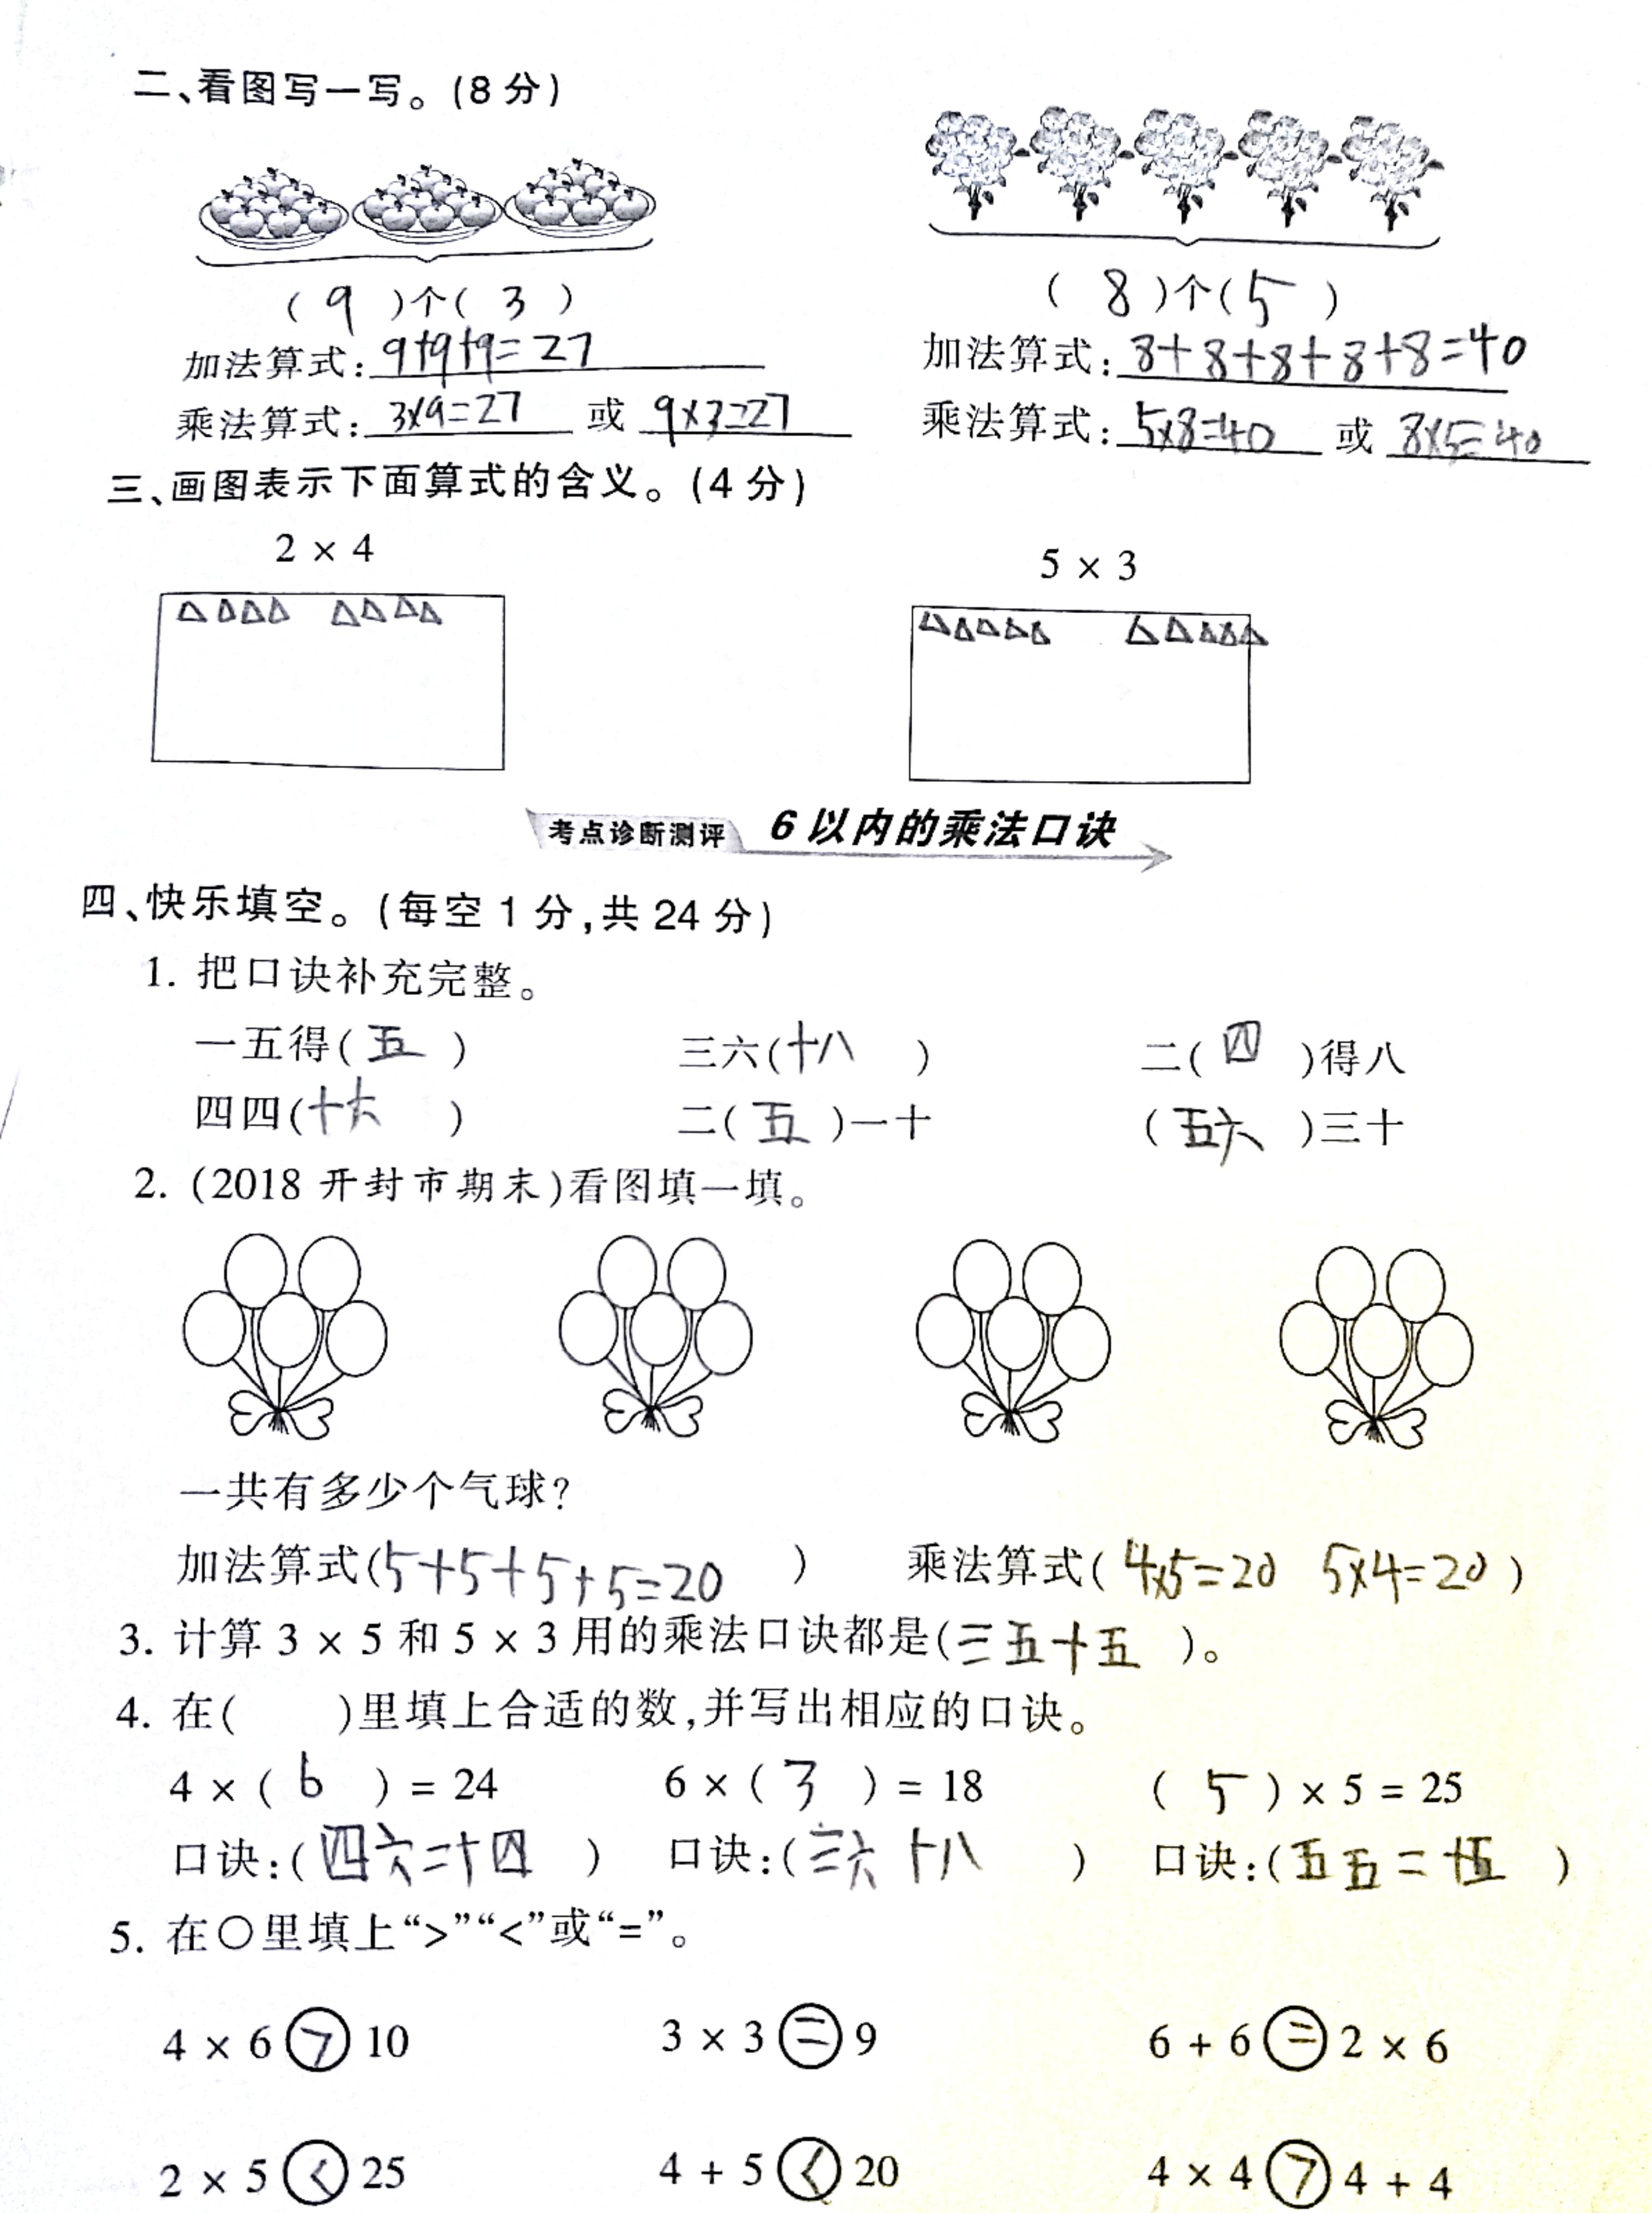 二、看图写一写。(8 分)
( 9 )个( 3 ) ( 8 )个( 5 )
加法算式:9+9+9=27 加法算式:8+8+8+8+8=40
乘法算式:3×9=27 或 9×3=27 乘法算式:5×8=40 或 8×5=40
三、画图表示下面算式的含义。(4 分)
2 × 4 5 × 3
考点诊断测评 6 以内的乘法口诀
四、快乐填空。(每空 1 分,共 24 分)
1. 把口诀补充完整。
一五得( 五 ) 三六(十八 ) 二( 四 )得八
四四(十六 ) 二( 五 )一十 ( 五六 )三十
2. (2018 开封市期末)看图填一填。
一共有多少个气球?
加法算式(5+5+5+5=20 ) 乘法算式( 4×5=20 5×4=20 )
3. 计算 3 × 5 和 5 × 3 用的乘法口诀都是(三五十五 )。
4. 在( )里填上合适的数,并写出相应的口诀。
4 × ( 6 ) = 24 6 × ( 3 ) = 18 ( 5 ) × 5 = 25
口诀:( 四六二十四 ) 口诀:( 三六十八 ) 口诀:( 五五二十五 )
5. 在○里填上“>”“<”或“=”。
4 × 6 > 10 3 × 3 = 9 6 + 6 = 2 × 6
2 × 5 < 25 4 + 5 < 20 4 × 4 > 4 + 4